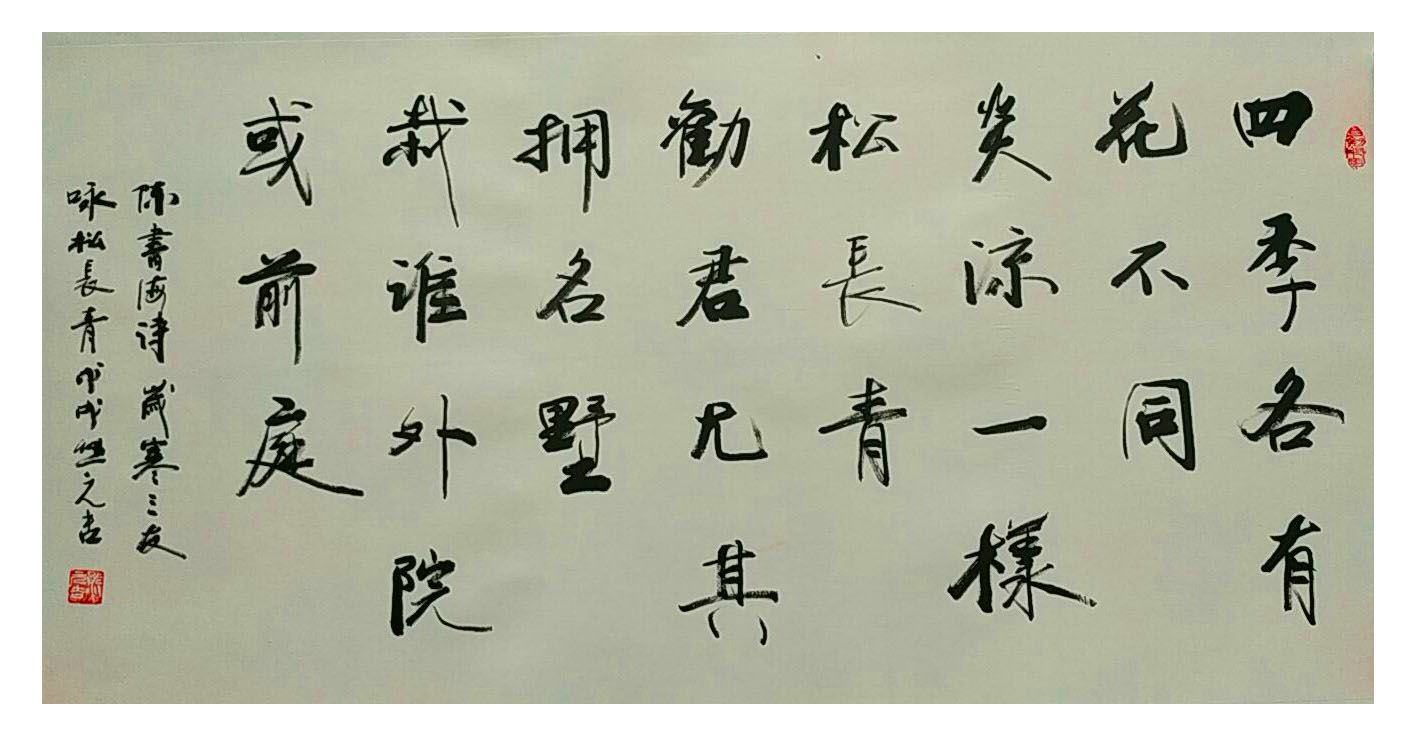 四季各有
花不同
炎涼一樣
松長青
勸君尤其
拥名墅
栽谁外院
或前庭
陈書海诗 歲寒三友
咏松長青 戊戌 元吉